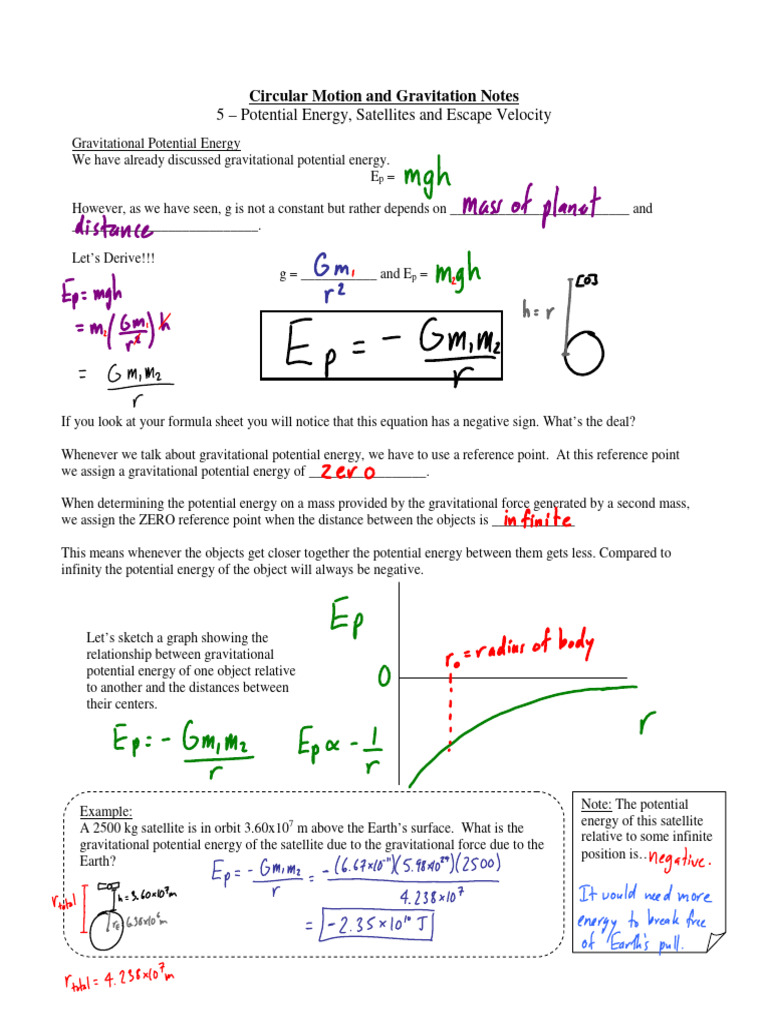 Circular Motion and Gravitation Notes
5 – Potential Energy, Satellites and Escape Velocity
Gravitational Potential Energy
We have already discussed gravitational potential energy.
Eₚ = mgh
However, as we have seen, g is not a constant but rather depends on mass of planet and
distance.
Let's Derive!!!
g = Gm₁/r² and Eₚ = m₂gh
Eₚ = mgh
= m₂(Gm₁/r²)h
= Gm₁m₂/r
Eₚ = - Gm₁m₂/r
h = r
If you look at your formula sheet you will notice that this equation has a negative sign. What's the deal?
Whenever we talk about gravitational potential energy, we have to use a reference point. At this reference point
we assign a gravitational potential energy of zero.
When determining the potential energy on a mass provided by the gravitational force generated by a second mass,
we assign the ZERO reference point when the distance between the objects is infinite
This means whenever the objects get closer together the potential energy between them gets less. Compared to
infinity the potential energy of the object will always be negative.
Let's sketch a graph showing the
relationship between gravitational
potential energy of one object relative
to another and the distances between
their centers.
Eₚ = - Gm₁m₂/r
Eₚ ∝ - 1/r
Eₚ
0
r₀ = radius of body
r
Example:
A 2500 kg satellite is in orbit 3.60x10⁷ m above the Earth's surface. What is the
gravitational potential energy of the satellite due to the gravitational force due to the
Earth?
Eₚ = - Gm₁m₂/r = -(6.67×10⁻¹¹)(5.98×10²⁴)(2500)/4.238×10⁷
= -2.35×10¹⁰ J
r total
h = 3.60×10⁷m
6.38×10⁶m
r total = 4.238×10⁷m
Note: The potential
energy of this satellite
relative to some infinite
position is… negative.
It would need more
energy to break free
of Earth's pull.